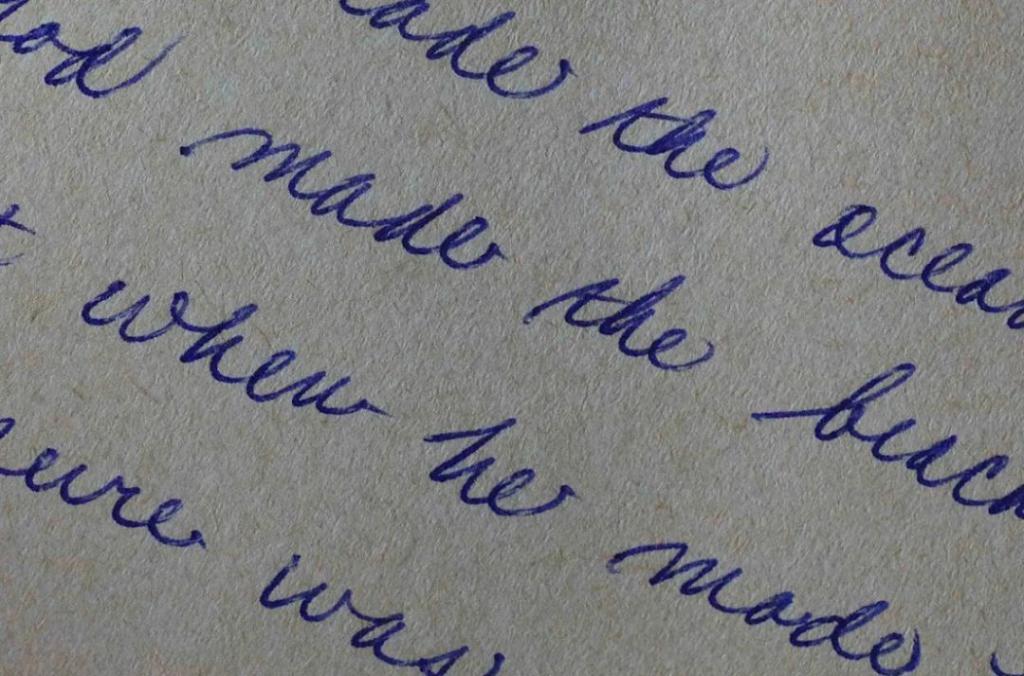 made the ocean
God made the beach
when he made
was